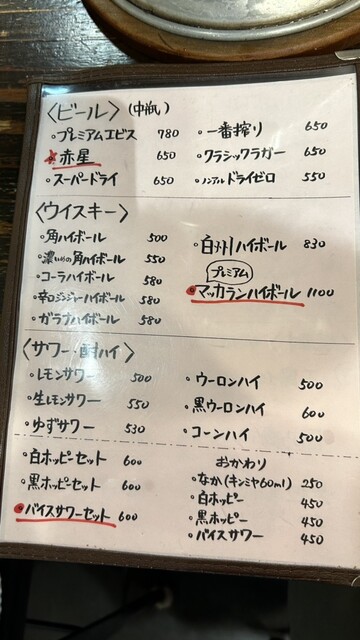 〈ビール〉(中瓶)
・プレミアムエビス 780
★赤星 650
・スーパードライ 650
・一番搾り 650
・クラシックラガー 650
・ノンアルドライゼロ 550
〈ウイスキー〉
・角ハイボール 500
・濃いめの角ハイボール 550
・コーラハイボール 580
・辛口ジンジャーハイボール 580
・ガラナハイボール 580
・白州ハイボール 830
プレミアム
・マッカランハイボール 1100
〈サワー・酎ハイ〉
・レモンサワー 500
・生レモンサワー 550
・ゆずサワー 530
・ウーロンハイ 500
・黒ウーロンハイ 600
・コーンハイ 500
・白ホッピーセット 600
・黒ホッピーセット 600
・バイスサワーセット 600
おかわり
・なか(キンミヤ60ml) 250
・白ホッピー 450
・黒ホッピー 450
・バイスサワー 450